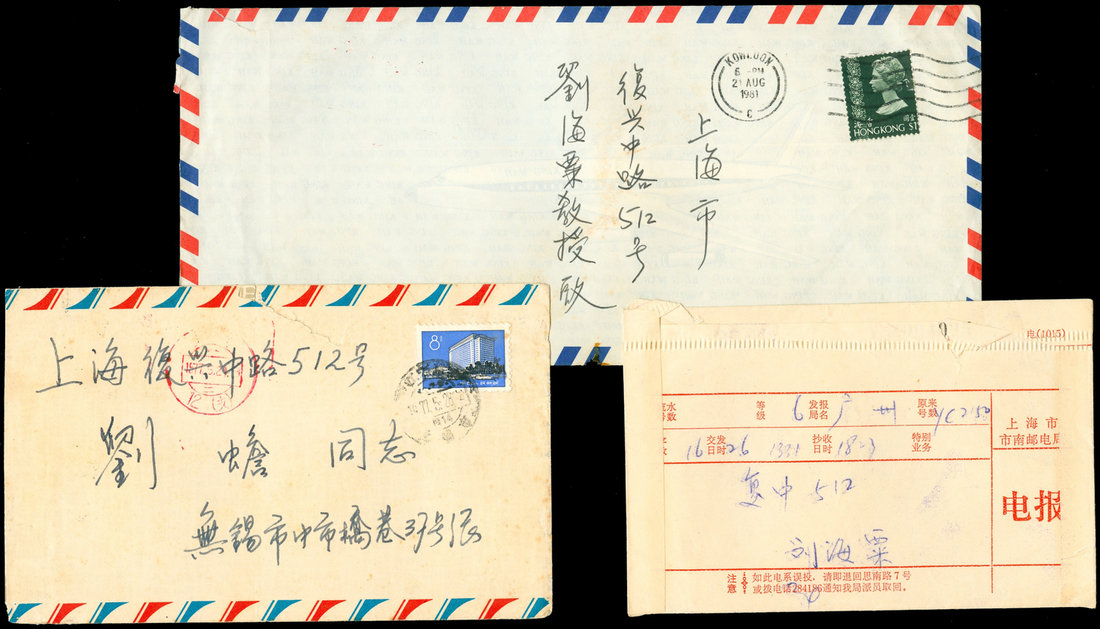 KOWLOON
6 - PM
21 AUG
1981
C
HONGKONG $1
上海市
復兴中路512号
劉海粟教授啟
8
上海復兴中路512号
劉蟾同志
無錫市中市橋巷39号張
电(1015)
流水号数
等级
6
发报局名
广州
原来号数
YC2150
16
交发日时
26 1331
抄收日时
18
特别业务
上海市
市南邮电局
复中512
电报
刘海粟
注意
如此电系误投，请即退回思南路7号
或拨电话284186通知我局派员取回。